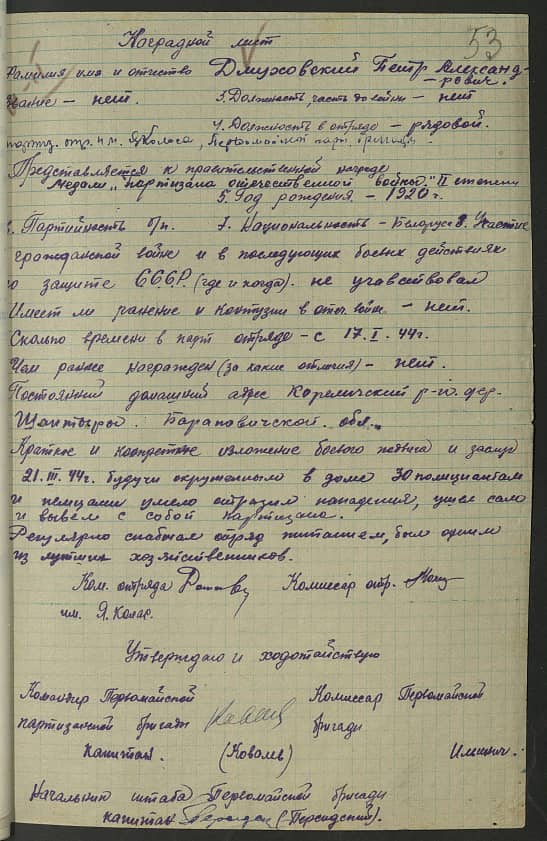 53
Наградной лист
Фамилия имя и отчество Дмуховский Петр Александ-
рович.
Звание – нет. 3. Должность часть до войны – нет
4. Должность в отряде – рядовой.
партиз. отр. им. Я. Коласа, Первомайской парт. бригады.
Представляется к правительственной награде
медали „партизана отечественной войны." II степени
5. Год рождения – 1920 г.
6. Партийность б/п. 7. Национальность – Беларус 8. Участие
гражданской войне и в последующих боевых действиях
по защите СССР. (где и когда). не учавствовал
Имеет ли ранение и контузии в отеч. войне – нет.
Сколько времени в парт отряде – с 17.I. 44г.
Чем ранее награжден (за какие отличия) – нет.
Постоянный домашний адрес Кореличский р-н. дер.
Барановичской. обл.
Краткое и конкретное изложение боевого подвига и заслуг
21.III.44г. будучи окруженным в доме 30 полициантам
и немцами умело отразил нападения, ушел сам
и вывел с собой партизана.
Регулярно снабжал отряд питанием, был одним
из лутших хозяйственников.
Ком. отряда Комиссар отр.
им. Я. Колас.
Утверждаю и ходотайствую
Командир Первомайской Комиссар Первомайской
партизанской бригады бригады
капитан. (Ковалев)
Начальник штаба Первомайской бригады
капитан (Персидский).